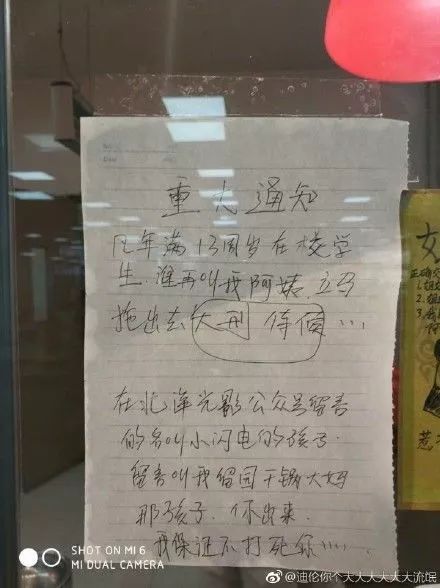 重大通知
凡年满13周岁在校学
生.谁再叫我阿姨立马
拖出去大刑伺候…
在北洋光影公众号留言
的名叫小闪电的孩子.
留言叫我留园干锅大妈
那孩子.你出来.
我保证不打死你……
女
正确
1.
2.
3.
惹
SHOT ON MI 6
MI DUAL CAMERA
@迪伦你个大大大大大大流氓